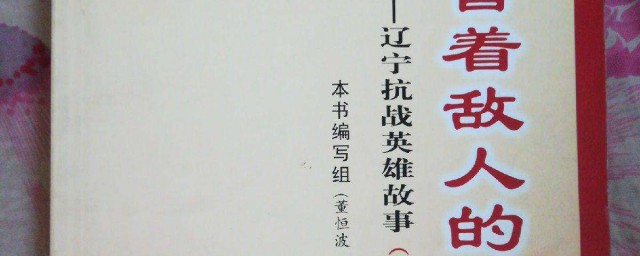 冒着敌人的
—辽宁抗战英雄故事（
本书编写组（董恒波